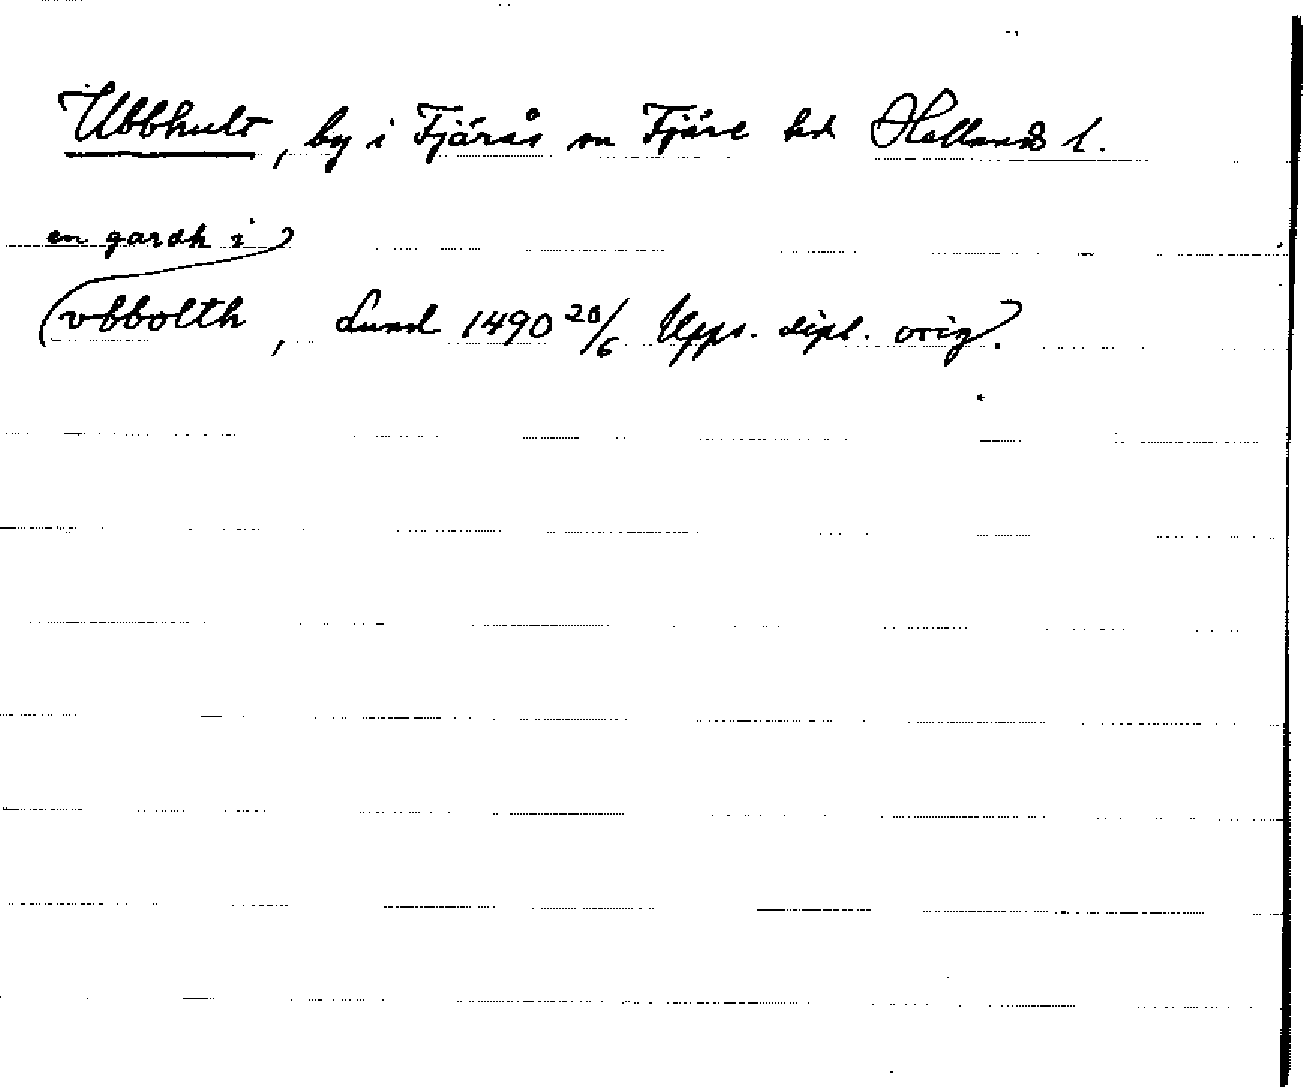 Ubbhult, by i Fjärås sn Fjäre hd Hallands l.
en gardh i
vbbolth, Lund 1490 20/6 Upps. dipl. orig.